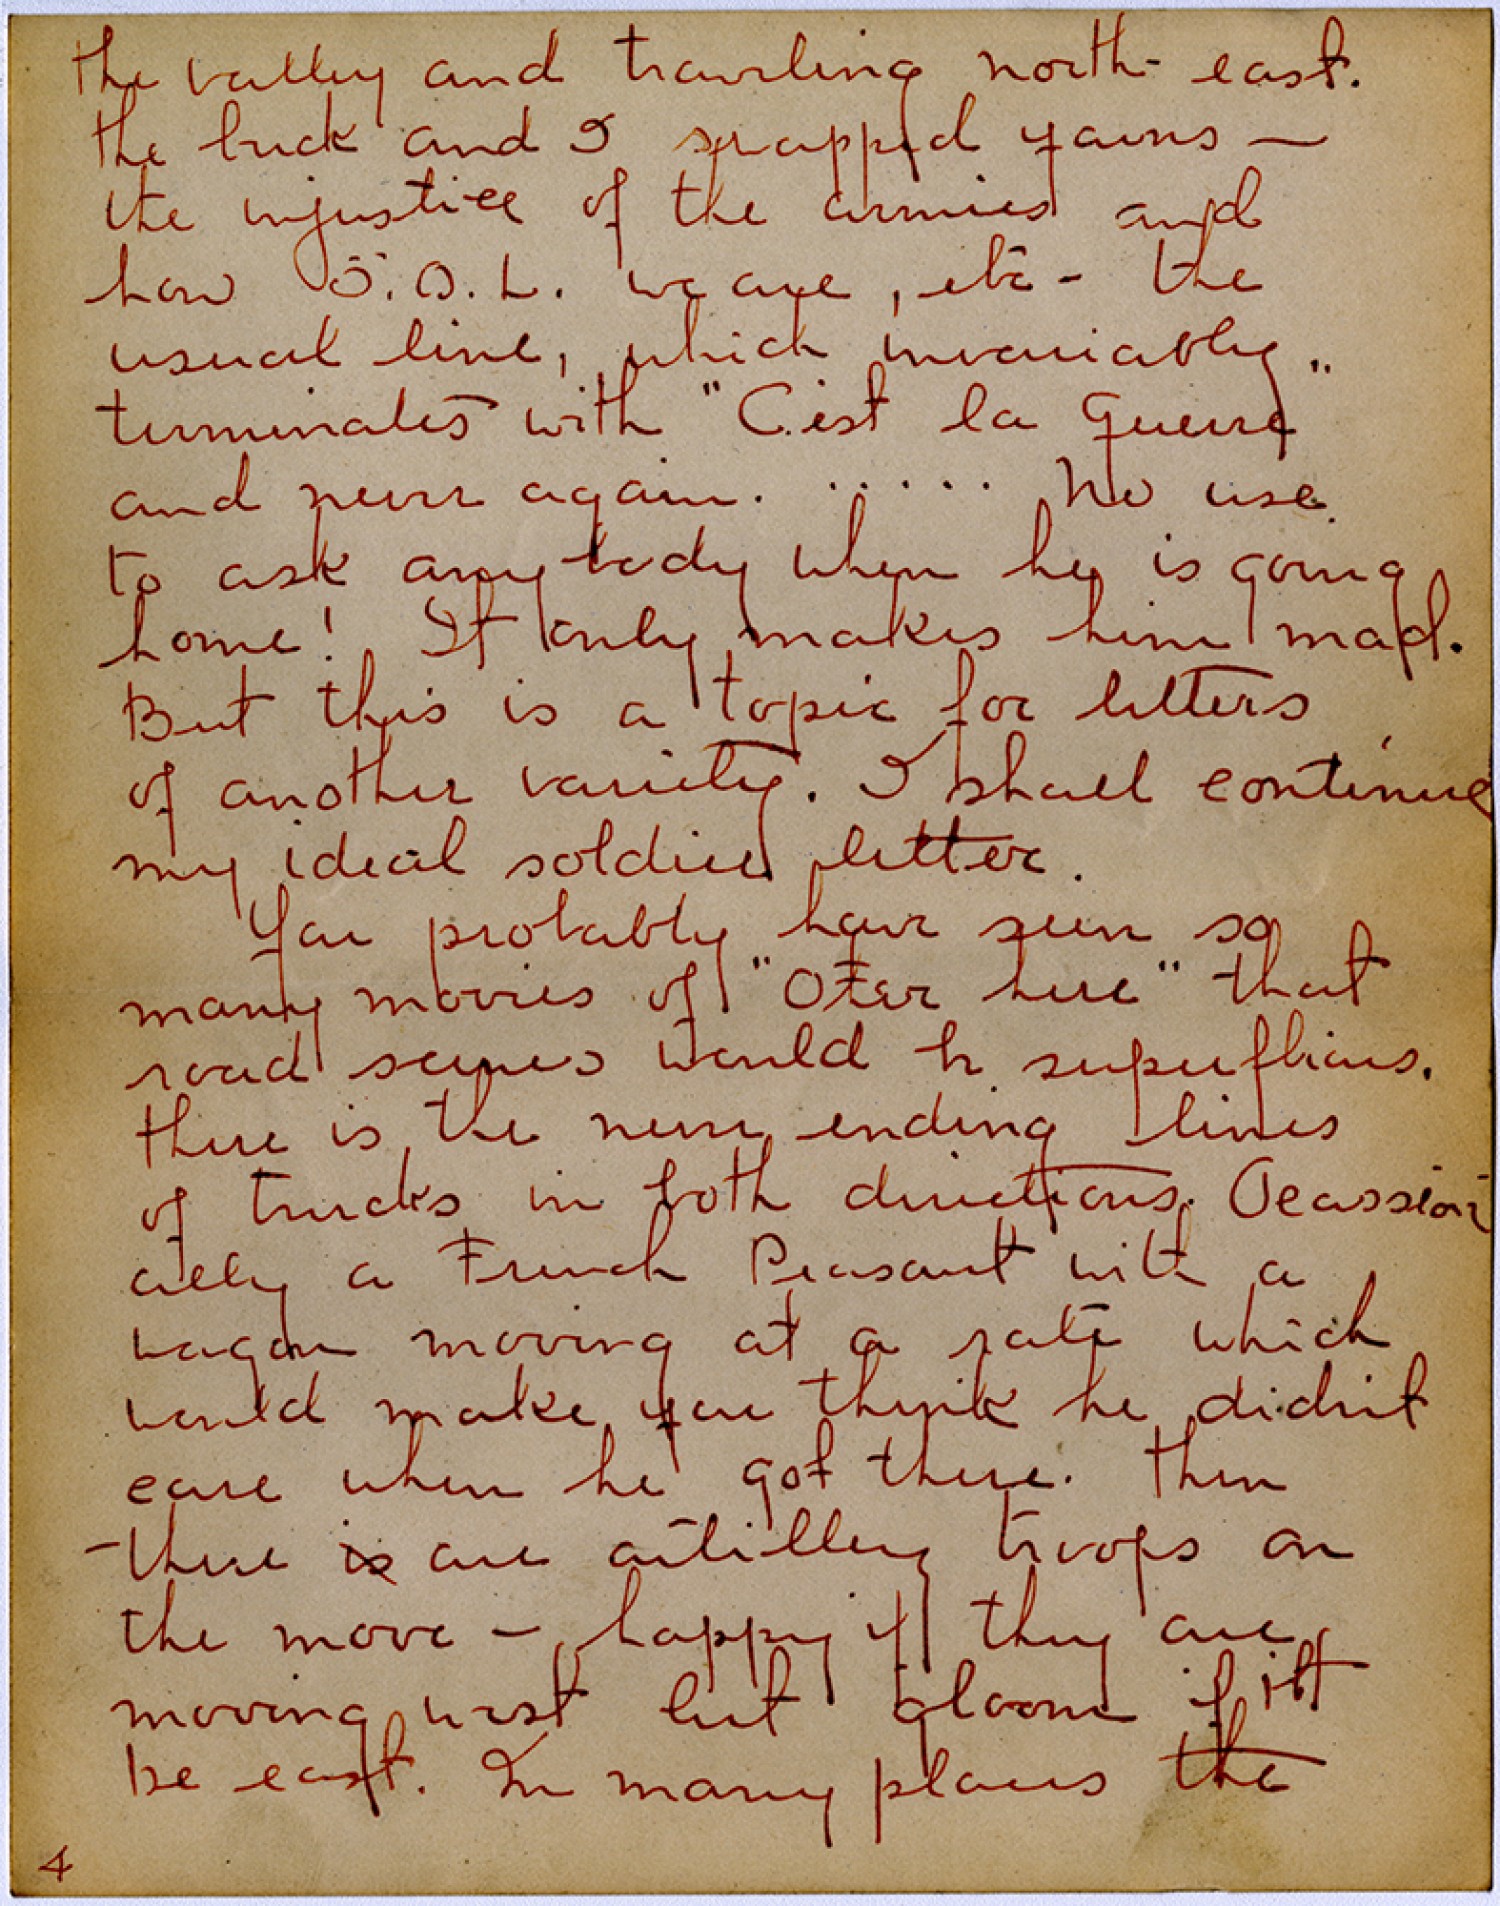 the valley and traveling north-east.
the buck and I swapped yarns —
the injustice of the armies and
how S.O.L. we are, etc - the
usual line, which invariably
terminates with "C'est la Guerre"
and never again. ..... No use
to ask anybody when he is going
home! It only makes him mad.
But this is a topic for letters
of another variety. I shall continue
my ideal soldier letter.
You probably have seen so
many movies of "Over here" that
road scenes would be superflious.
there is the never ending lines
of trucks in both directions. Ocassion-
ally a French Peasant with a
wagon moving at a rate which
would make you think he didn't
care when he got there. Then
- there is are artillery troops on
the move - happy if they are
moving west but gloom if it
be east. In many places the
4